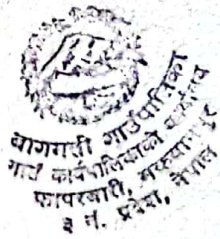 बागमती गाउँपालिका
गाउँ कार्यपालिकाको कार्यालय
फापरबारी, मकवानपुर
३ नं. प्रदेश, नेपाल